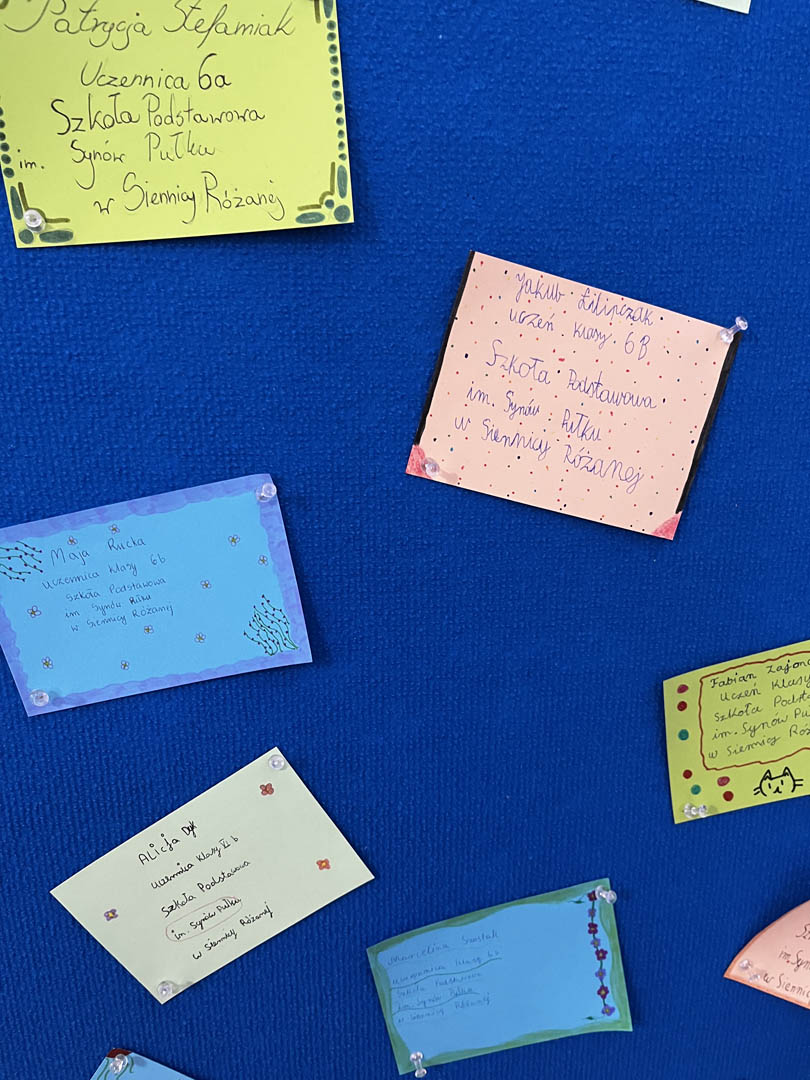 Patrycja Stefaniak
Uczennica 6a
Szkoła Podstawowa
im. Synów Pułku
w Siennicy Różanej
Jakub Filipczak
uczeń klasy 6B
Szkoła Podstawowa
im. Synów Pułku
w Siennicy Różanej
Maja Rucka
uczennica klasy 6b
Szkoła Podstawowa
im Synów Pułku
w Siennicy Różanej
Fabian Zając
Uczeń klasy
Szkoła Podst
im. Synów Pu
w Siennicy Róż
ALicja Dyk
uczennica klasy VI b
Szkoła Podstawowa
im. Synów Pułku
w Siennicy Różanej
Marcelina Szostak
uczennica klasy 6b
Szkoła Podstawowa
im. Synów Pułku
w Siennicy Różanej
im. Syn
w Siennic